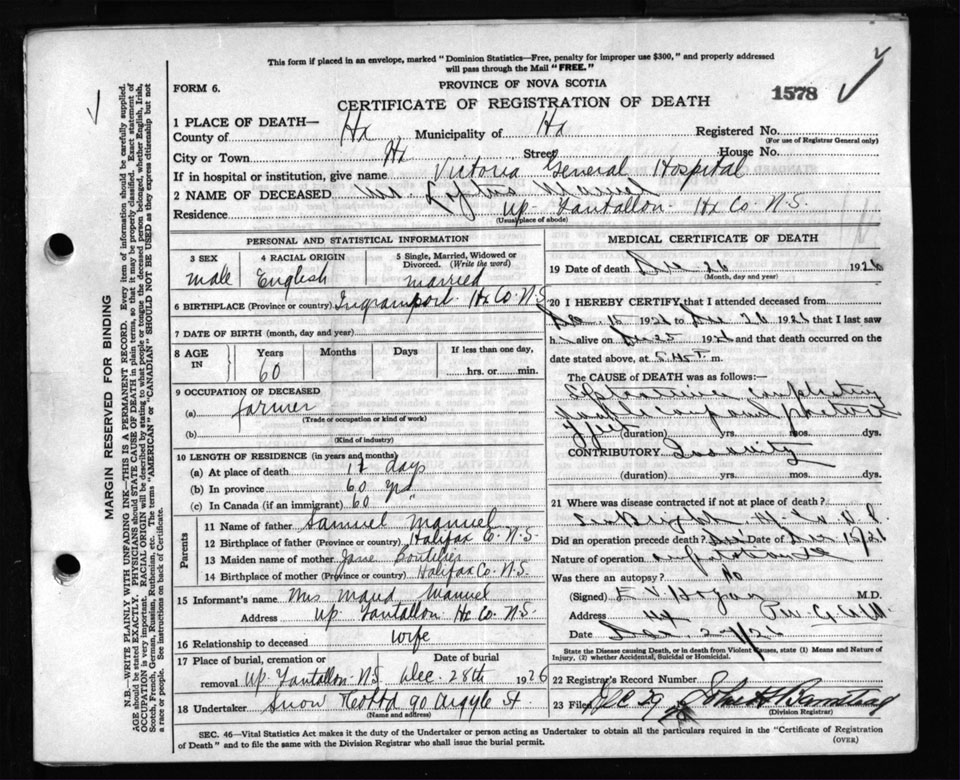 This form if placed in an envelope, marked "Dominion Statistics—Free, penalty for improper use $300," and properly addressed
will pass through the Mail "FREE."
PROVINCE OF NOVA SCOTIA
FORM 6.
CERTIFICATE OF REGISTRATION OF DEATH
1578
1 PLACE OF DEATH—
County of Hx, Municipality of Hx Registered No.
(For use of Registrar General only)
City or Town Hx Street House No.
If in hospital or institution, give name Victoria General Hospital
2 NAME OF DECEASED Mr. Loftus Manuel
Residence Up. Tantallon Hx Co. N.S.
(Usual place of abode)
PERSONAL AND STATISTICAL INFORMATION
3 SEX 4 RACIAL ORIGIN 5 Single, Married, Widowed or
Divorced. (Write the word)
Male English Married
6 BIRTHPLACE (Province or country) Ingramport Hx Co. N.S.
7 DATE OF BIRTH (month, day and year)
8 AGE IN Years Months Days If less than one day,
60 hrs. or min.
9 OCCUPATION OF DECEASED
(a) farmer
(Trade or occupation or kind of work)
(b)
(Kind of industry)
10 LENGTH OF RESIDENCE (in years and months)
(a) At place of death days
(b) In province 60 yrs
(c) In Canada (if an immigrant) 60 "
Parents
11 Name of father Samuel Manuel
12 Birthplace of father (Province or country) Halifax Co. N.S.
13 Maiden name of mother Jane Boutilier
14 Birthplace of mother (Province or country) Halifax Co. N.S.
15 Informant's name Mrs Maud Manuel
Address Up Tantallon Hx Co. N.S.
16 Relationship to deceased wife
17 Place of burial, cremation or Date of burial
removal Up. Tantallon N.S. Dec. 28th 1926
18 Undertaker Snow 90 Argyle St.
(Name and address)
MEDICAL CERTIFICATE OF DEATH
19 Date of death Dec 26 1926
(Month, day and year)
20 I HEREBY CERTIFY, that I attended deceased from
Dec. 15 1926 to Dec 26 1926 that I last saw
h alive on Dec 25 1926 and that death occurred on the
date stated above, at m.
The CAUSE OF DEATH was as follows:—
(duration) yrs. mos. dys.
CONTRIBUTORY
(duration) yrs. mos. dys.
21 Where was disease contracted if not at place of death?
Did an operation precede death? Date of Dec 15/26
Nature of operation
Was there an autopsy? No
(Signed) E V Hogan M.D.
Address Hx
Date Dec. 27/26
State the Disease causing Death, or in death from Violent Causes, state (1) Means and Nature of
Injury, (2) whether Accidental, Suicidal or Homicidal.
22 Registrar's Record Number
23 Filed Dec 29
(Division Registrar)
SEC. 46—Vital Statistics Act makes it the duty of the Undertaker or person acting as Undertaker to obtain all the particulars required in the "Certificate of Registration
of Death" and to file the same with the Division Registrar who shall issue the burial permit.
(OVER)
MARGIN RESERVED FOR BINDING
N.B.—WRITE PLAINLY WITH UNFADING INK—THIS IS A PERMANENT RECORD. Every item of information should be carefully supplied.
AGE should be stated EXACTLY. PHYSICIANS should STATE CAUSE OF DEATH in plain terms, so that it may be properly classified. Exact statement of
OCCUPATION is very important. RACIAL ORIGIN will be described by stating to what people or tongue the deceased person belonged, whether English, Irish,
Scotch, French, German, Russian, Ruthenian, etc. The terms "AMERICAN" or "CANADIAN" SHOULD NOT BE USED as they express citizenship but not
a race or people. See instructions on back of Certificate.